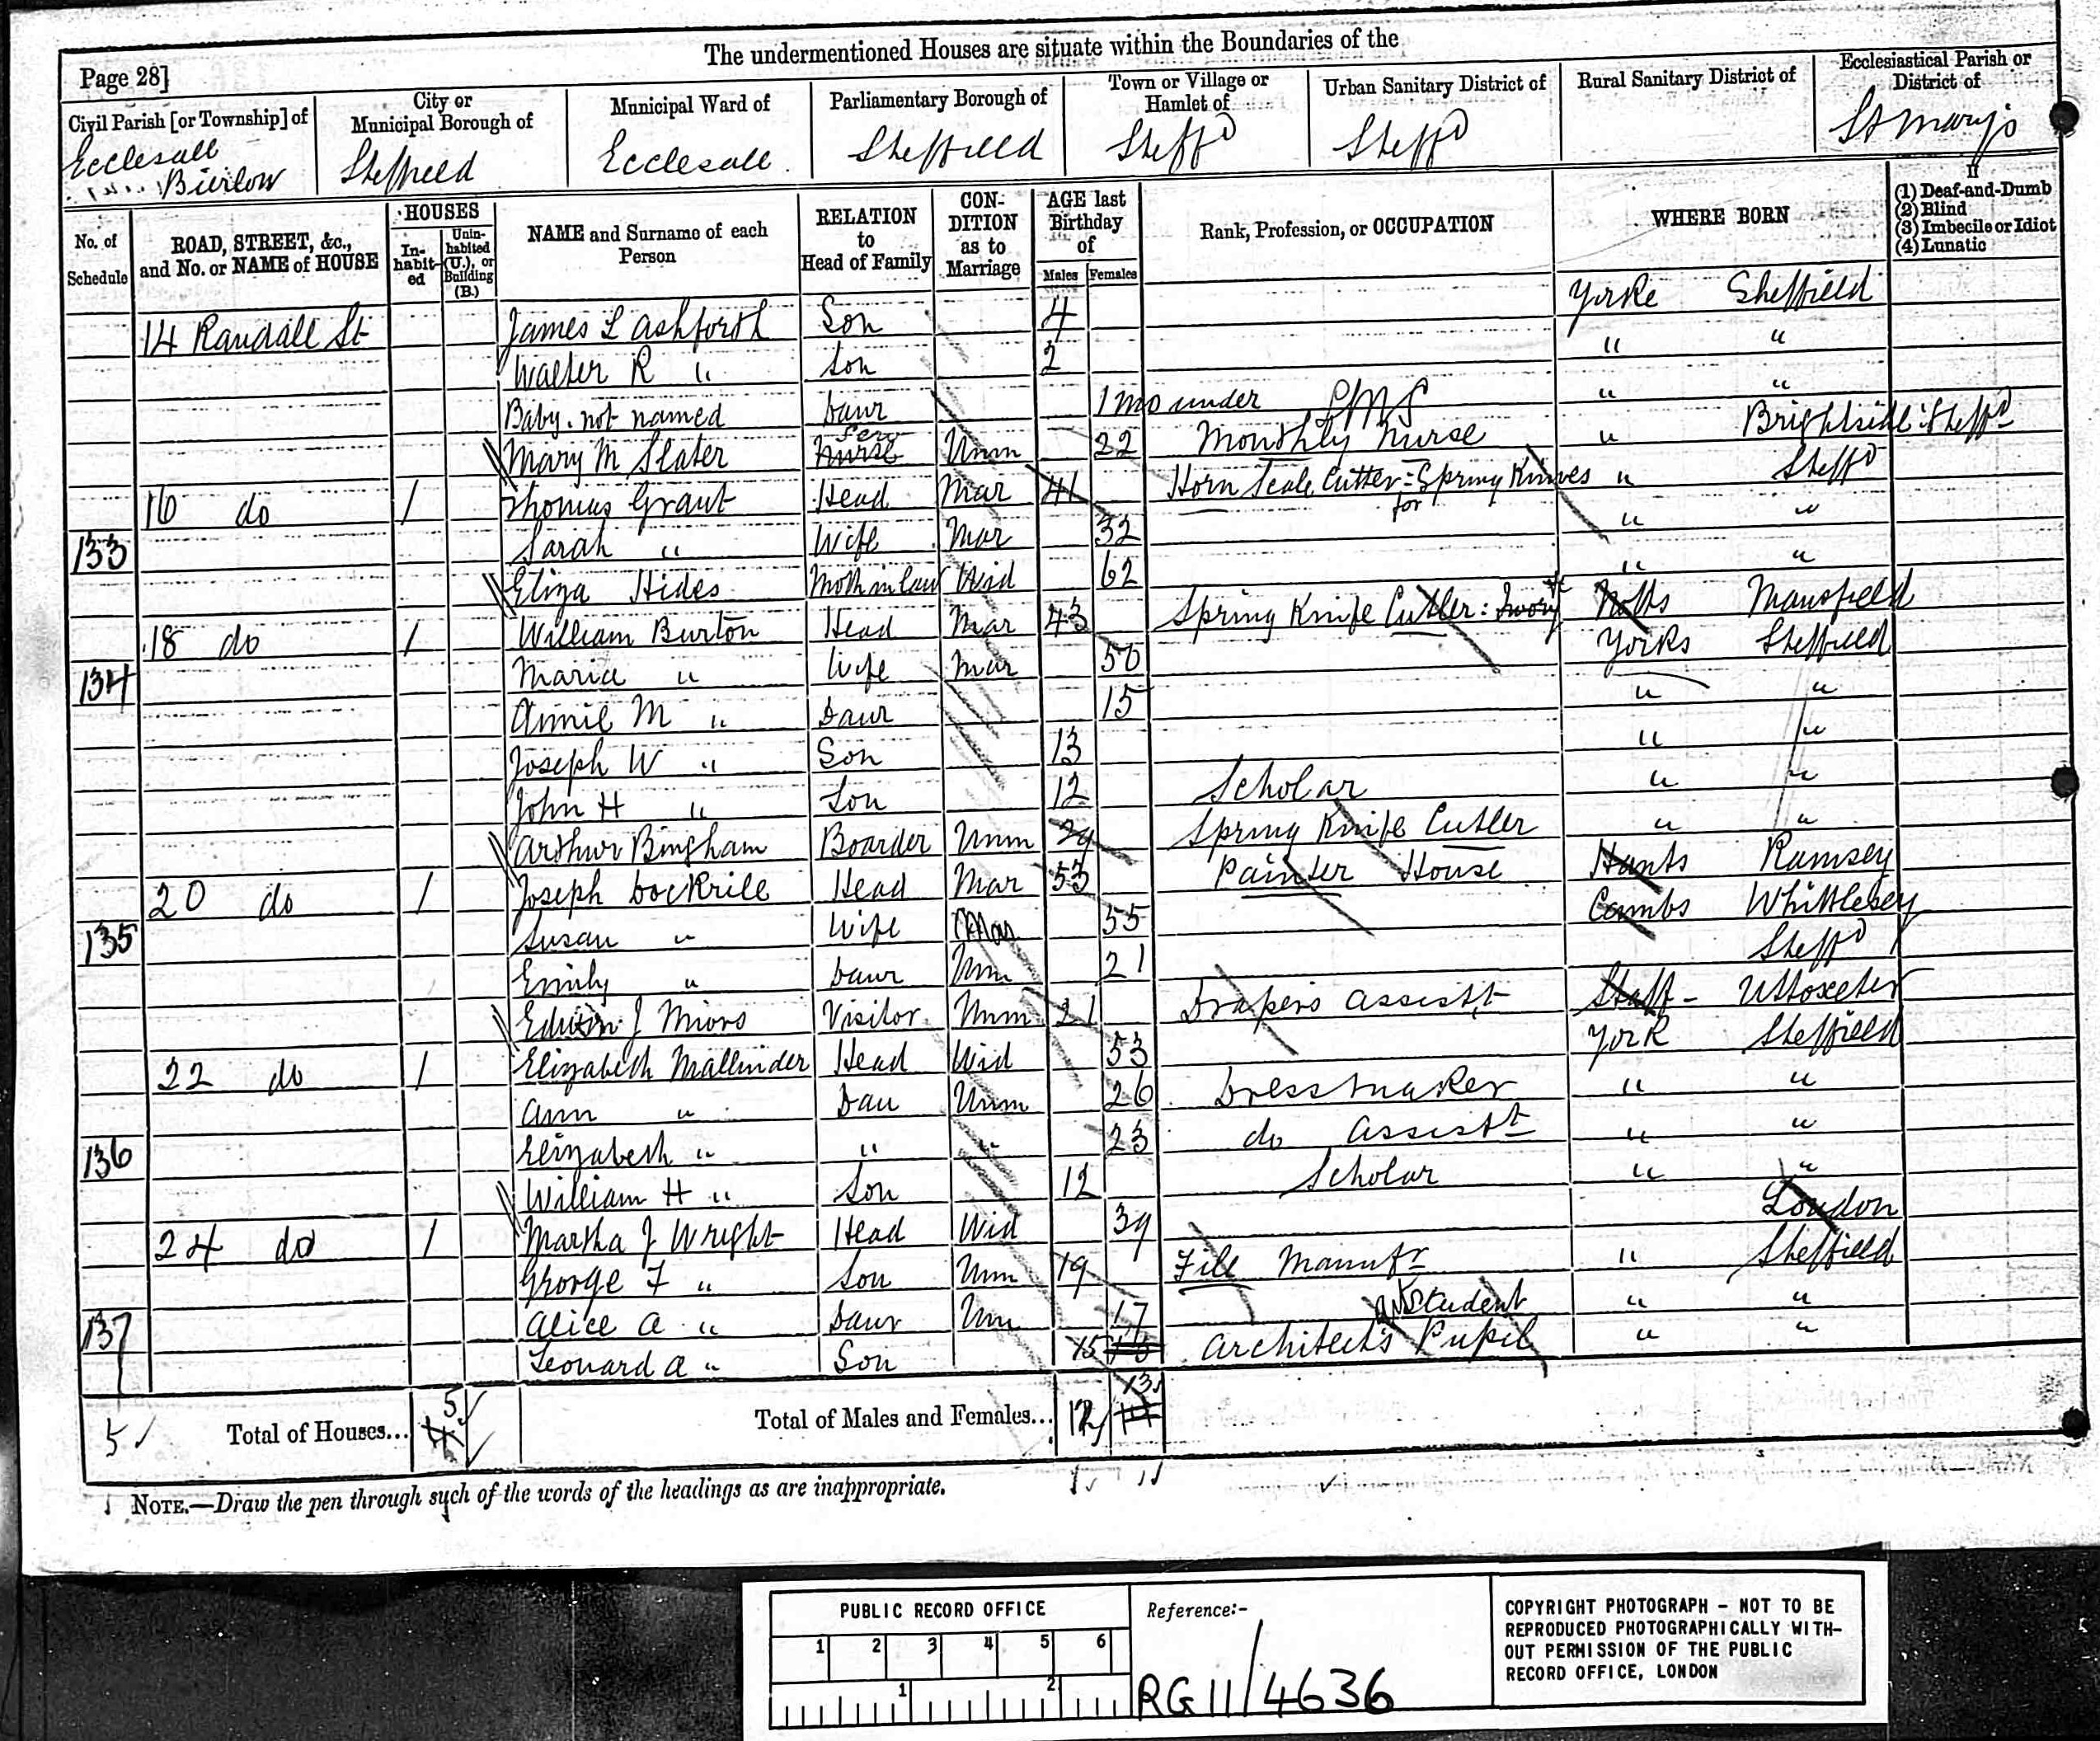 The undermentioned Houses are situate within the Boundaries of the
Page 28]
Civil Parish [or Township] of
Ecclesall Bierlow
City or Municipal Borough of
Sheffield
Municipal Ward of
Ecclesall
Parliamentary Borough of
Sheffield
Town or Village or Hamlet of
Sheffd
Urban Sanitary District of
Sheffd
Rural Sanitary District of
Ecclesiastical Parish or District of
St Mary's
No. of Schedule
ROAD, STREET, &c., and No. or NAME of HOUSE
HOUSES
In-habit-ed
Unin-habited (U.), or Building (B.)
NAME and Surname of each Person
RELATION to Head of Family
CON-DITION as to Marriage
AGE last Birthday of
Males Females
Rank, Profession, or OCCUPATION
WHERE BORN
If
(1) Deaf-and-Dumb
(2) Blind
(3) Imbecile or Idiot
(4) Lunatic
14 Randall St James L Ashforth Son 4 Yorks Sheffield
Walter R " Son 2 " "
Baby. not named Daur 1 mo under " "
Mary M Slater Nurse Serv Unm 22 Monthly Nurse " Brightside: Sheffd
16 do 1 Thomas Grant Head Mar 41 Horn Scale Cutter: for Spring Knives " Sheffd
133 Sarah " Wife Mar 32 " "
Eliza Hides Moth in law Wid 62 " "
18 do 1 William Burton Head Mar 43 Spring Knife Cutler: Ivory Notts Mansfield
134 Maria " Wife Mar 50 Yorks Sheffield
Annie M " Daur 15 " "
Joseph W " Son 13 " "
John H " Son 12 Scholar " "
Arthur Bingham Boarder Unm 29 Spring Knife Cutler " "
20 do 1 Joseph Dockrile Head Mar 53 Painter House Hants Ramsey
135 Susan " Wife Mar 55 Cambs Whittlesey
Emily " Daur Unm 21 Sheffd
Edwin J Miors Visitor Unm 21 Drapers Assistt Staff- Uttoxeter
22 do 1 Elizabeth Mallinder Head Wid 53 York Sheffield
Ann " Dau Unm 26 Dressmaker " "
136 Elizabeth " " " 23 do Assistt " "
William H " Son 12 Scholar " "
24 do 1 Martha J Wright Head Wid 39 London
George F " Son Unm 19 File Manufr " Sheffield
137 Alice A " Daur Unm 17 Art Student " "
Leonard A " Son 15 Architects Pupil " "
5 Total of Houses... 5 4
Total of Males and Females... 12 13 14
NOTE.—Draw the pen through such of the words of the headings as are inappropriate.
PUBLIC RECORD OFFICE
1 2 3 4 5 6
1 2
Reference:-
RG 11/4636
COPYRIGHT PHOTOGRAPH - NOT TO BE
REPRODUCED PHOTOGRAPHICALLY WITH-
OUT PERMISSION OF THE PUBLIC
RECORD OFFICE, LONDON